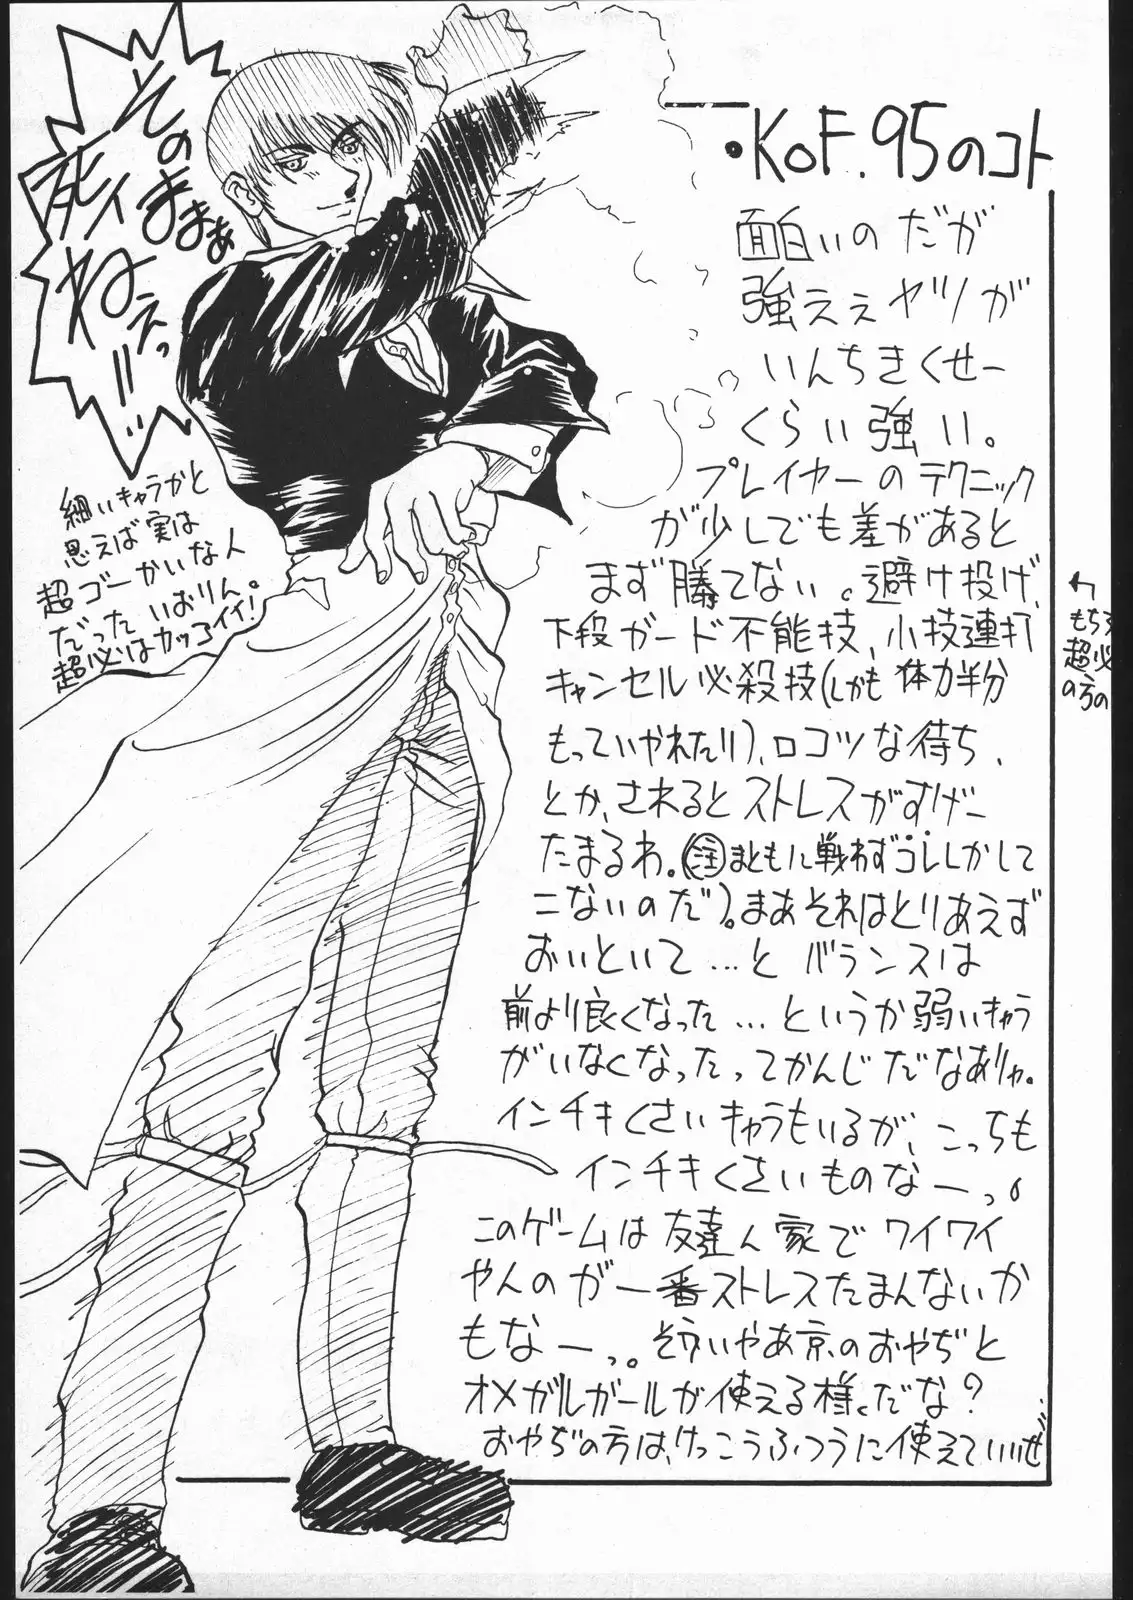 ・KoF.95のコト
面白いのだが
強ええヤツが
いんちきくせー
くらい強い。
プレイヤーのテクニック
が少しでも差があると
まず勝てない。避け投げ、
下段ガード不能技、小技連打
キャンセル必殺技(しかも体力半分
もっていかれたり)、ロコツな待ち、
とか、されるとストレスがすげー
たまるわ。(注まともに戦わずコレしかして
こないのだ)。まあそれはとりあえず
おいといて…と バランスは
前より良くなった…というか弱いキャラ
がいなくなったってかんじだなありゃ。
インチキくさいキャラもいるが、こっちも
インチキくさいものなーっ。
このゲームは友達ん家でワイワイ
やんのが一番ストレスたまんないか
もなーっ。そういやあ京のおやぢと
オメガルガールが使える様だな?
おやぢの方は、けっこうふつうに使えていいぜ
そのままぁ
死ィねぇっ!!
細いキャラかと
思えば実は
超ゴーかいな人
だったいおりん。
超必はカッコイイ!
もちろ
超必
の方の